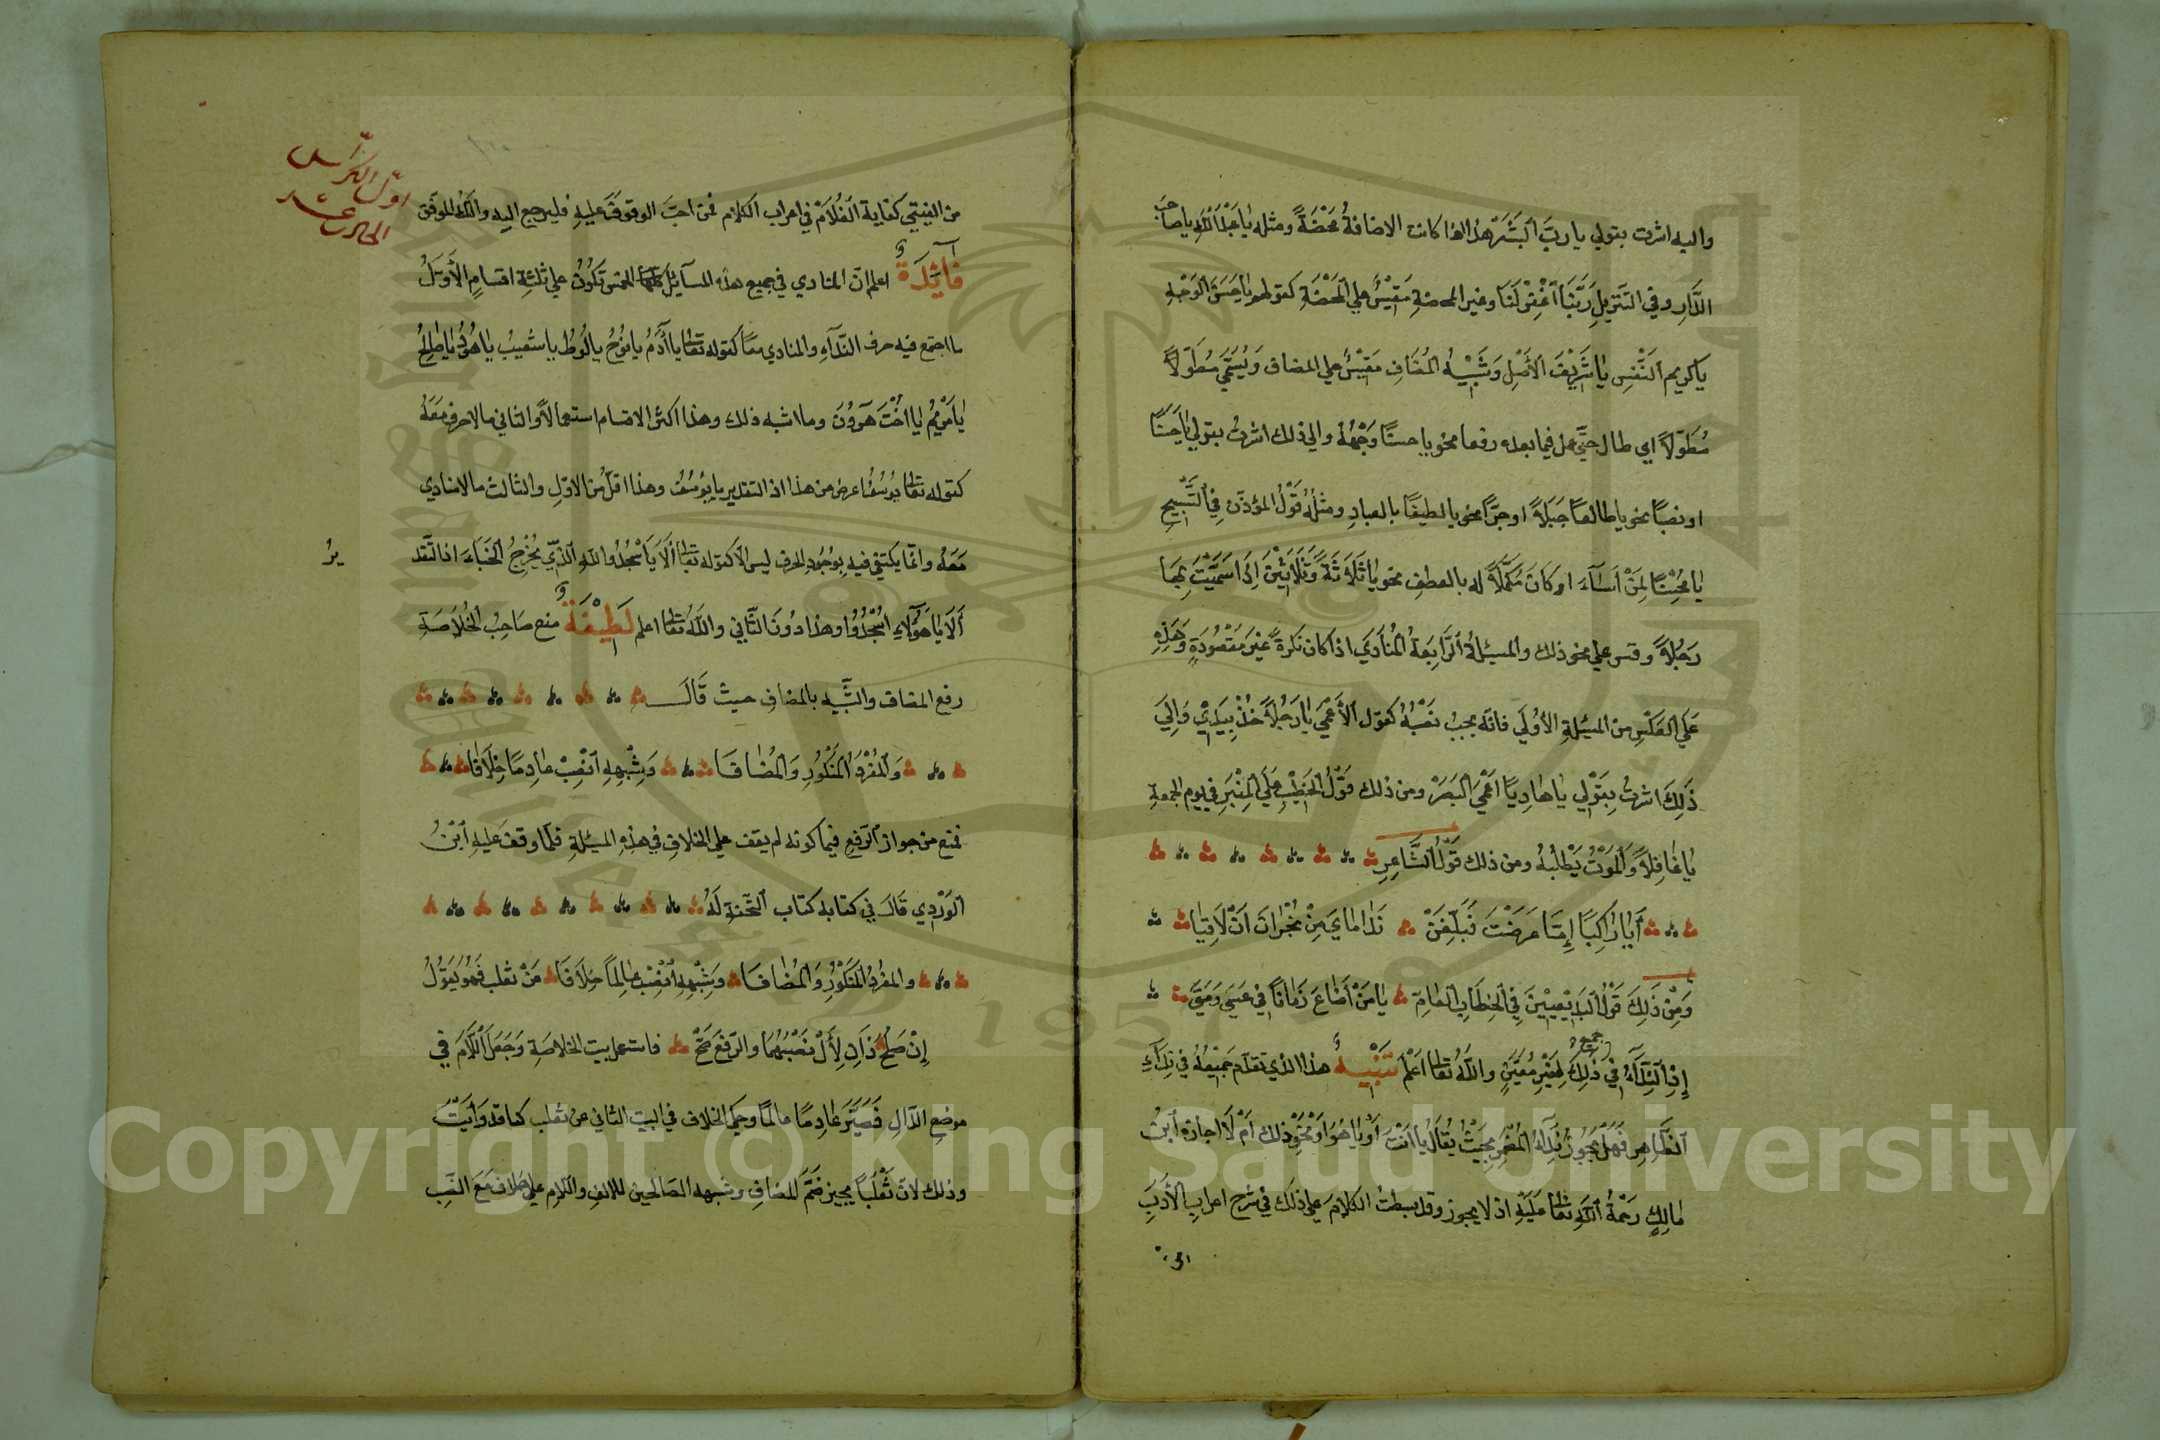 واليه اشرت بقولي يا ربَّ البَشَرْ هذا اذا كانت الاضافةُ مَحْضَةً ومثله يا عَبْدَ اللهِ يا صاحبَ
الدَّارِ وفي التنزيلِ رَبَّنَا اغْفِرْ لَنَا وغير المحضةِ مَقِيْسٌ علي المَحْضَةِ كقولهم يا حَسَنَ الوَجْهِ
يا كريم النَّفْسِ يا شَرِيْفَ الأَصْلِ وَشَبِيْهُ المُضَافِ مَقِيْسٌ علي المضاف وَيُسَمَّي مُطَوَّلاً
مُطَوَّلاً اي طال حتَّي عمل فيما بعده رفعا نحو يا حسنًا وَجْهُهُ والي ذلك اشرتُ بقولي يا حَسَنًا
او نصبًا نحو يا طالعًا جَبَلاً او جرًّا نحو يا لطيفًا بالعبادِ ومثلُهُ قَوْلُ المؤذّن فِي التَّسْبِيْحِ
يا مُحْسِنًا لِمَنْ اَسَآءَ او كَانَ مُكَمِّلاً له بالعطف نحو يا ثَلَاثَةً وَثَلَاثِيْنَ اِذَا سَمَّيْتَ بِهَا
رَجُلاً وقس علي نحو ذلك والمسئلةُ الرَّابِعَةُ المُنَادَي اذا كان نَكِرَةً غَيْرَ مَقْصُودَةٍ وَهَذِهِ
عَلَي العَكْسِ من المسئلةِ الأُوْلَي فانّه يجبُ نَصْبُهُ كقول الأَعْمَي يا رَجُلاً خُذْ بِيَدِيْ وَاِلَيَ
ذَلِكَ اشرتُ بِقَوْلِي يا هادِيًا اَعْمَيَ البَصَرْ ومن ذلك قَوْلُ الخَطِيْبِ عَلَي المِنْبَرِ في يوم الجمعةِ
يا غَافِلاً وَالمَوْتُ يَطْلُبُهُ ومن ذلك قَوْلُ الشَّاعِرِ
أَيا رَاكِبًا إِمَّا عَرَضْتَ فَبَلِّغَنْ نَدَامايَ مِنْ نَجْرانَ اَنْ لَا تَلاقِيا
وَمِنْ ذَلِكَ قَوْلُ البَدِيْعِيِّيْنَ فِي الخِطَابِ العَامِّ يا مَنْ أَضَاعَ زَمانًا فِي عَسَي وَمَتَي
إِذِ النِّدَآءُ فِي جميع ذَلِكَ لِغَيْرِ مُعَيَّنٍ واللهُ تعالى اعْلَمْ تَنْبِيْهٌ هذا الذي تقدّم جَمِيْعُهُ في نِدَآءِ
الظَّاهِرِ فَهَلْ يَجُوزُ نِدَآءُ المُضْمَرِ بِحَيْثُ يُقَالُ يا اَنْتَ أَوْ يا هُوَ اَوْ نَحْوُ ذلك أَمْ لَا اجازهُ ابْنُ
مالِكٍ رَحْمَةُ اللهِ تعالى عَلَيْهِ اذ لا يجوز وقد بسطتُ الكَلَامَ علي ذلكَ في شرح اعرابِ الأَدَبِ
اول الكرّاس
الحادي عشر
من الفيتي كفاية الغُلَامْ في اعراب الكلام فمن احبّ الوقوفَ عليهِ فليرجع اليهِ واللهُ الموفّق
فَآئِدَةٌ اعلم انّ المنادي في جميع هذه المسآئِل كلّها الخمس تكُونُ علي ثلثةِ اقسامٍ الأَوّلُ
ما اجتمع فيه حرف النّدآءِ والمنادي معًا كقوله تعالى يا آدَمُ يا نُوْحُ يا لُوطُ يا شعيبُ يا هُوْدُ يا صٰلِحُ
يا مَرْيَمُ يا اخْتَ هَرُوْنَ وما اشبه ذلك وهذا اكثر الاقسام استعمالاً والثاني ما لا حرف مَعَهُ
كقوله تعالى يُوسُفُ اعرض عن هذا اذ التقدير يا يُوسُفُ وهذا اقلّ من الاوّلِ والثالث ما لا منادي
مَعَهُ وانّما يكتفي فيهِ بِوُجُودِ الحرف ليس الّا كقوله تعالى ألَا يا اسْجُدُوا للهِ الذِّي يُخْرِجُ الخَبَاءَ اذ التّقد
ير
أَلَا يا هَؤُلَاءِ اسْجُدُوا وهذا دُونَ الثَّانِي واللهُ تعالى اعلم لَطِيْفَةٌ منع صَاحِبُ الخُلَاصَةِ
رفع المضاف والشّبيه بالمضاف حيث قَالَ
وَالمُفْرَدَ المَنْكُورَ وَالمُضَافَا وَشِبْهَهِ انْصِبْ عادِمًا خِلَافَا
فمنع من جواز الرّفعِ فيما كونه لم يقف علي الخلافِ فِي هذِهِ المسئلةِ فلمّا وقفَ عَليهِ ابْنُ
الوَرْدِي قَالَ في كتابه كتاب التّحْفَةِ لَهُ
والمفردَ المَنْكُوْرَ وَالمُضافَا وَشِبْهِهِ انْصِبْ عالِمًا خِلَافَا عَنْ ثعلبٍ فَهْوَ يَقُوْلُ
إِنْ صَلُحْ ذَانِ لِأَلْ نَصْبُهُمَا والرّفعُ صَحْ فاستعمل بيت الخلاصةِ وَجَعَلَ اللَّامَ في
موضعِ الدَّالِ فَصَيَّرَ عَادِمًا عالمًا وحكي الخلاف في البيتِ الثاني عن ثعلب كما قد رَأَيْتَ
وذلك لانّ ثَعْلَبًا يجيز ضَمَّ المضافِ وشبههِ الصّالحين للالفِ واللام علي خلاف مَعَ النَّصبِ